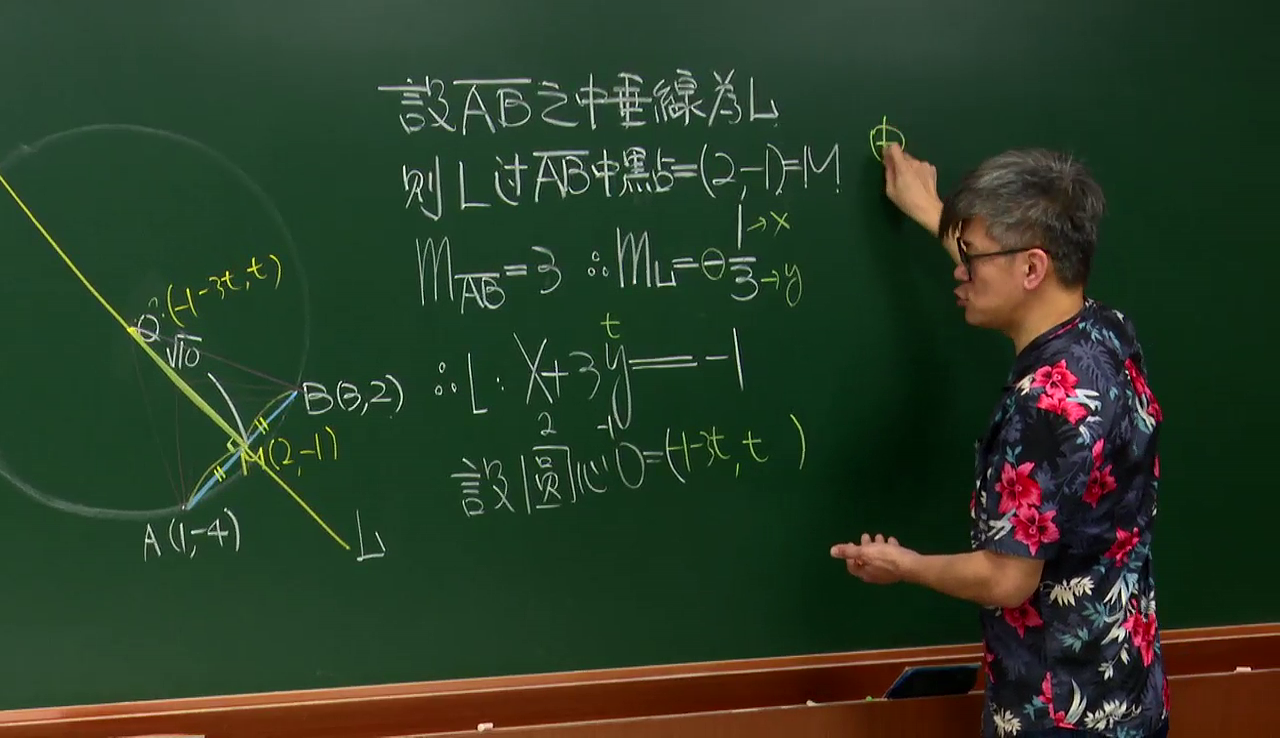 設AB之中垂線為L
則L过AB中點=(2,-1)=M
m_AB=3 ∴m_L=⊖1/3 →x →y
t
∴L:x+3y=-1
2 -1
設圓心O=(-1-3t,t )
O:(-1-3t,t)
√10
B(3,2)
M(2,-1)
A(1,-4)
L